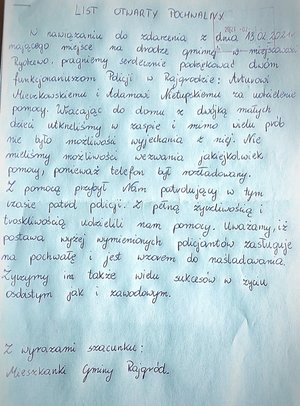 LIST OTWARTY POCHWALNY
W nawiązaniu do zdarzenia z dnia 18.02.2021r
mającego miejsce na drodze gminnej w miejscowości
Rybczewo, pragniemy serdecznie podziękować dwóm
funkcjonariuszom Policji w Rajgrodzie: Arturowi
Mieczkowskiemu i Adamowi Nietupskiemu za udzielenie
pomocy. Wracając do domu z dwójką małych
dzieci utknęliśmy w zaspie i mimo wielu prób
nie było możliwości wyjechania z niej. Nie
mieliśmy możliwości wezwania jakiejkolwiek
pomocy, ponieważ telefon był rozładowany.
Z pomocą przybył Nam patrolujący w tym
czasie patrol policji. Z pełną życzliwością i
troskliwością udzielili nam pomocy. Uważamy, iż
postawa wyżej wymienionych policjantów zasługuje
na pochwałę i jest wzorem do naśladowania.
Życzymy im także wielu sukcesów w życiu
osobistym jak i zawodowym.
Z wyrazami szacunku:
Mieszkanki Gminy Rajgród.